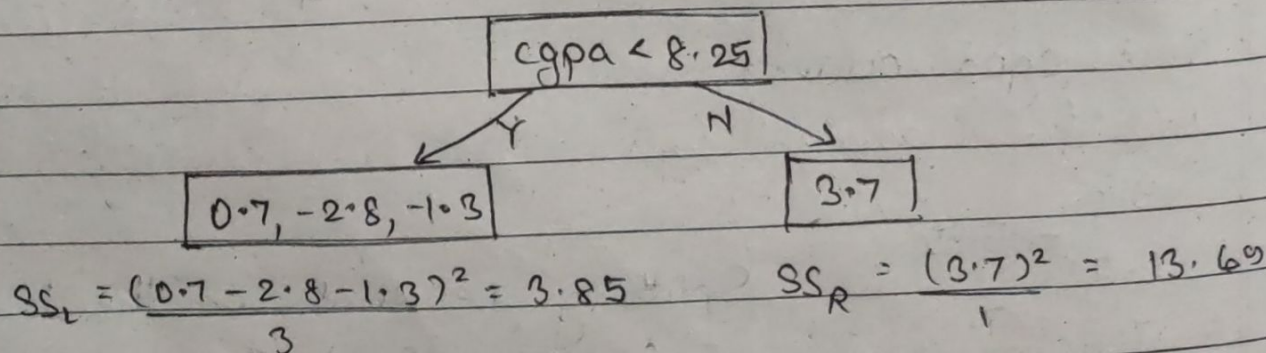 cgpa < 8.25
Y N
0.7, -2.8, -1.3 3.7
SS_L = (0.7 - 2.8 - 1.3)² / 3 = 3.85 SS_R = (3.7)² / 1 = 13.69